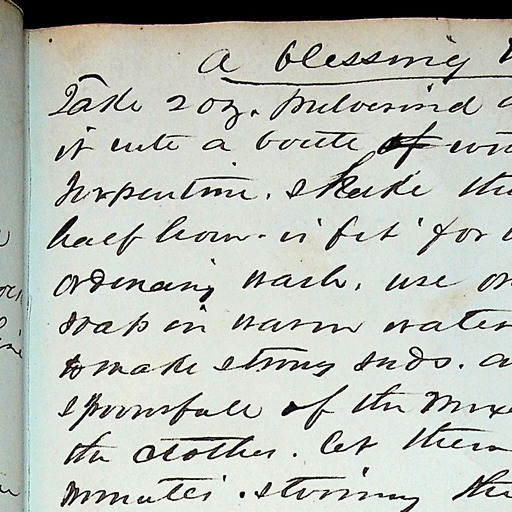 A blessing
Take 2 oz. pulverind
it into a bottle of
Turpentine. shake the
half hour. is fit for
ordinary wash. use
soap in warm water
to make strong suds.
spoonsfull of the
the clothes. let them
minutes. stirring the